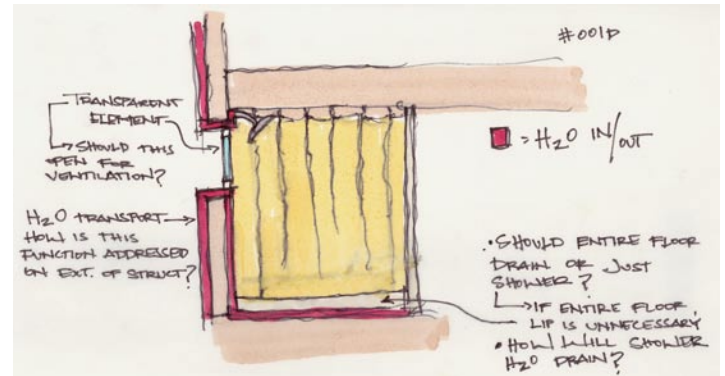 #001D
TRANSPARENT
ELEMENT
SHOULD THIS
OPEN FOR
VENTILATION?
H2O TRANSPORT
HOW IS THIS
FUNCTION ADDRESSED
ON EXT. OF STRUCT?
= H2O IN/OUT
• SHOULD ENTIRE FLOOR
DRAIN OR JUST
SHOWER?
IF ENTIRE FLOOR,
LIP IS UNNECESSARY
• HOW WILL SHOWER
H2O DRAIN?